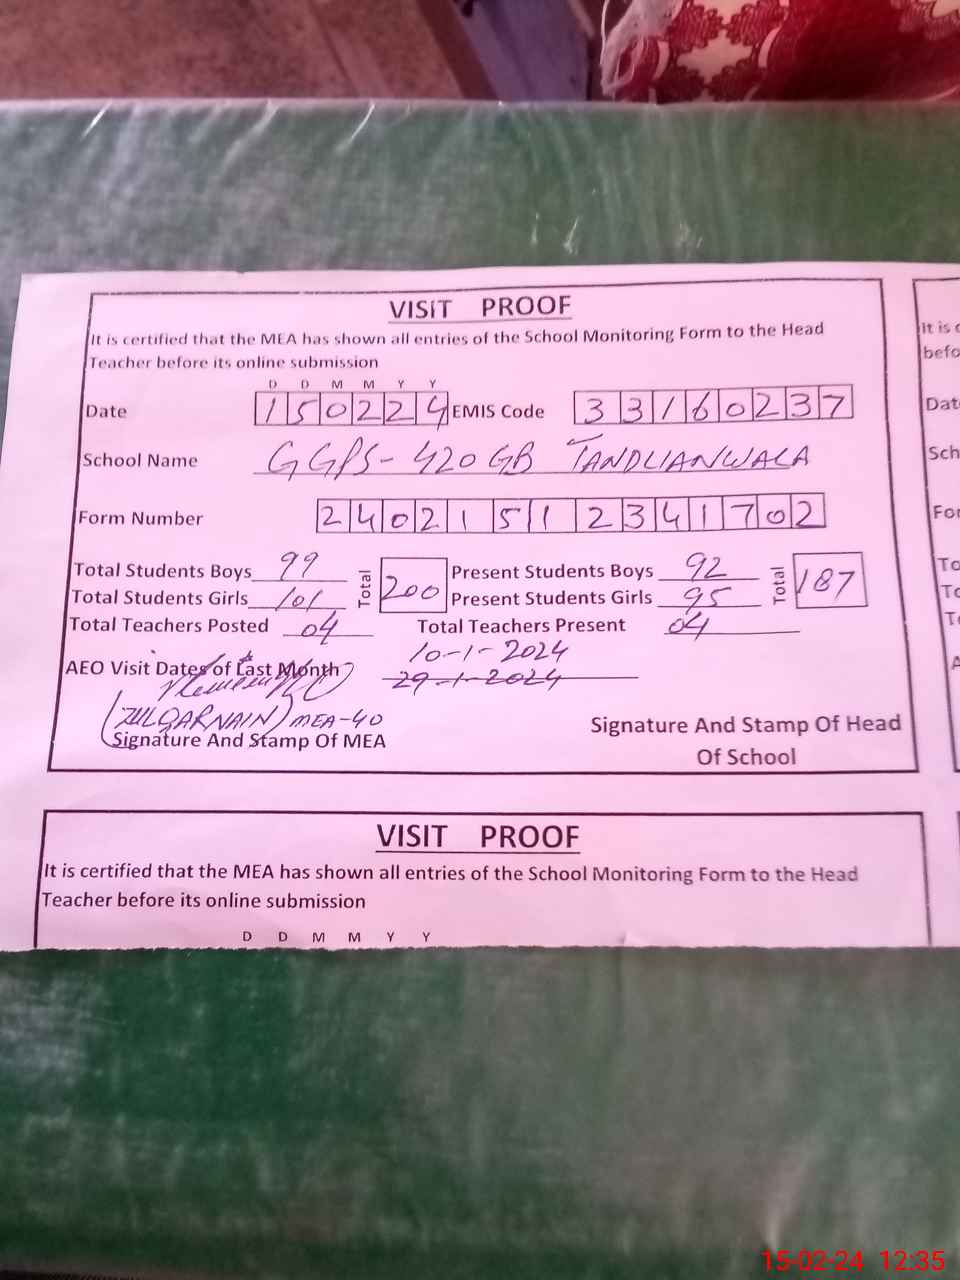 VISIT PROOF
It is certified that the MEA has shown all entries of the School Monitoring Form to the Head
Teacher before its online submission
D D M M Y Y
Date 150224 EMIS Code 33160237
School Name GGPS-420 GB TANDLIANWALA
Form Number 24021512341702
Total Students Boys 99 Total 200 Present Students Boys 92 Total 187
Total Students Girls 101 Present Students Girls 95
Total Teachers Posted 04 Total Teachers Present 04
AEO Visit Dates of Last Month 10-1-2024
29-1-2024
(ZULQARNAIN) MEA-40
Signature And Stamp Of MEA
Signature And Stamp Of Head
Of School
VISIT PROOF
It is certified that the MEA has shown all entries of the School Monitoring Form to the Head
Teacher before its online submission
D D M M Y Y
It is
Sch
15-02-24 12:35